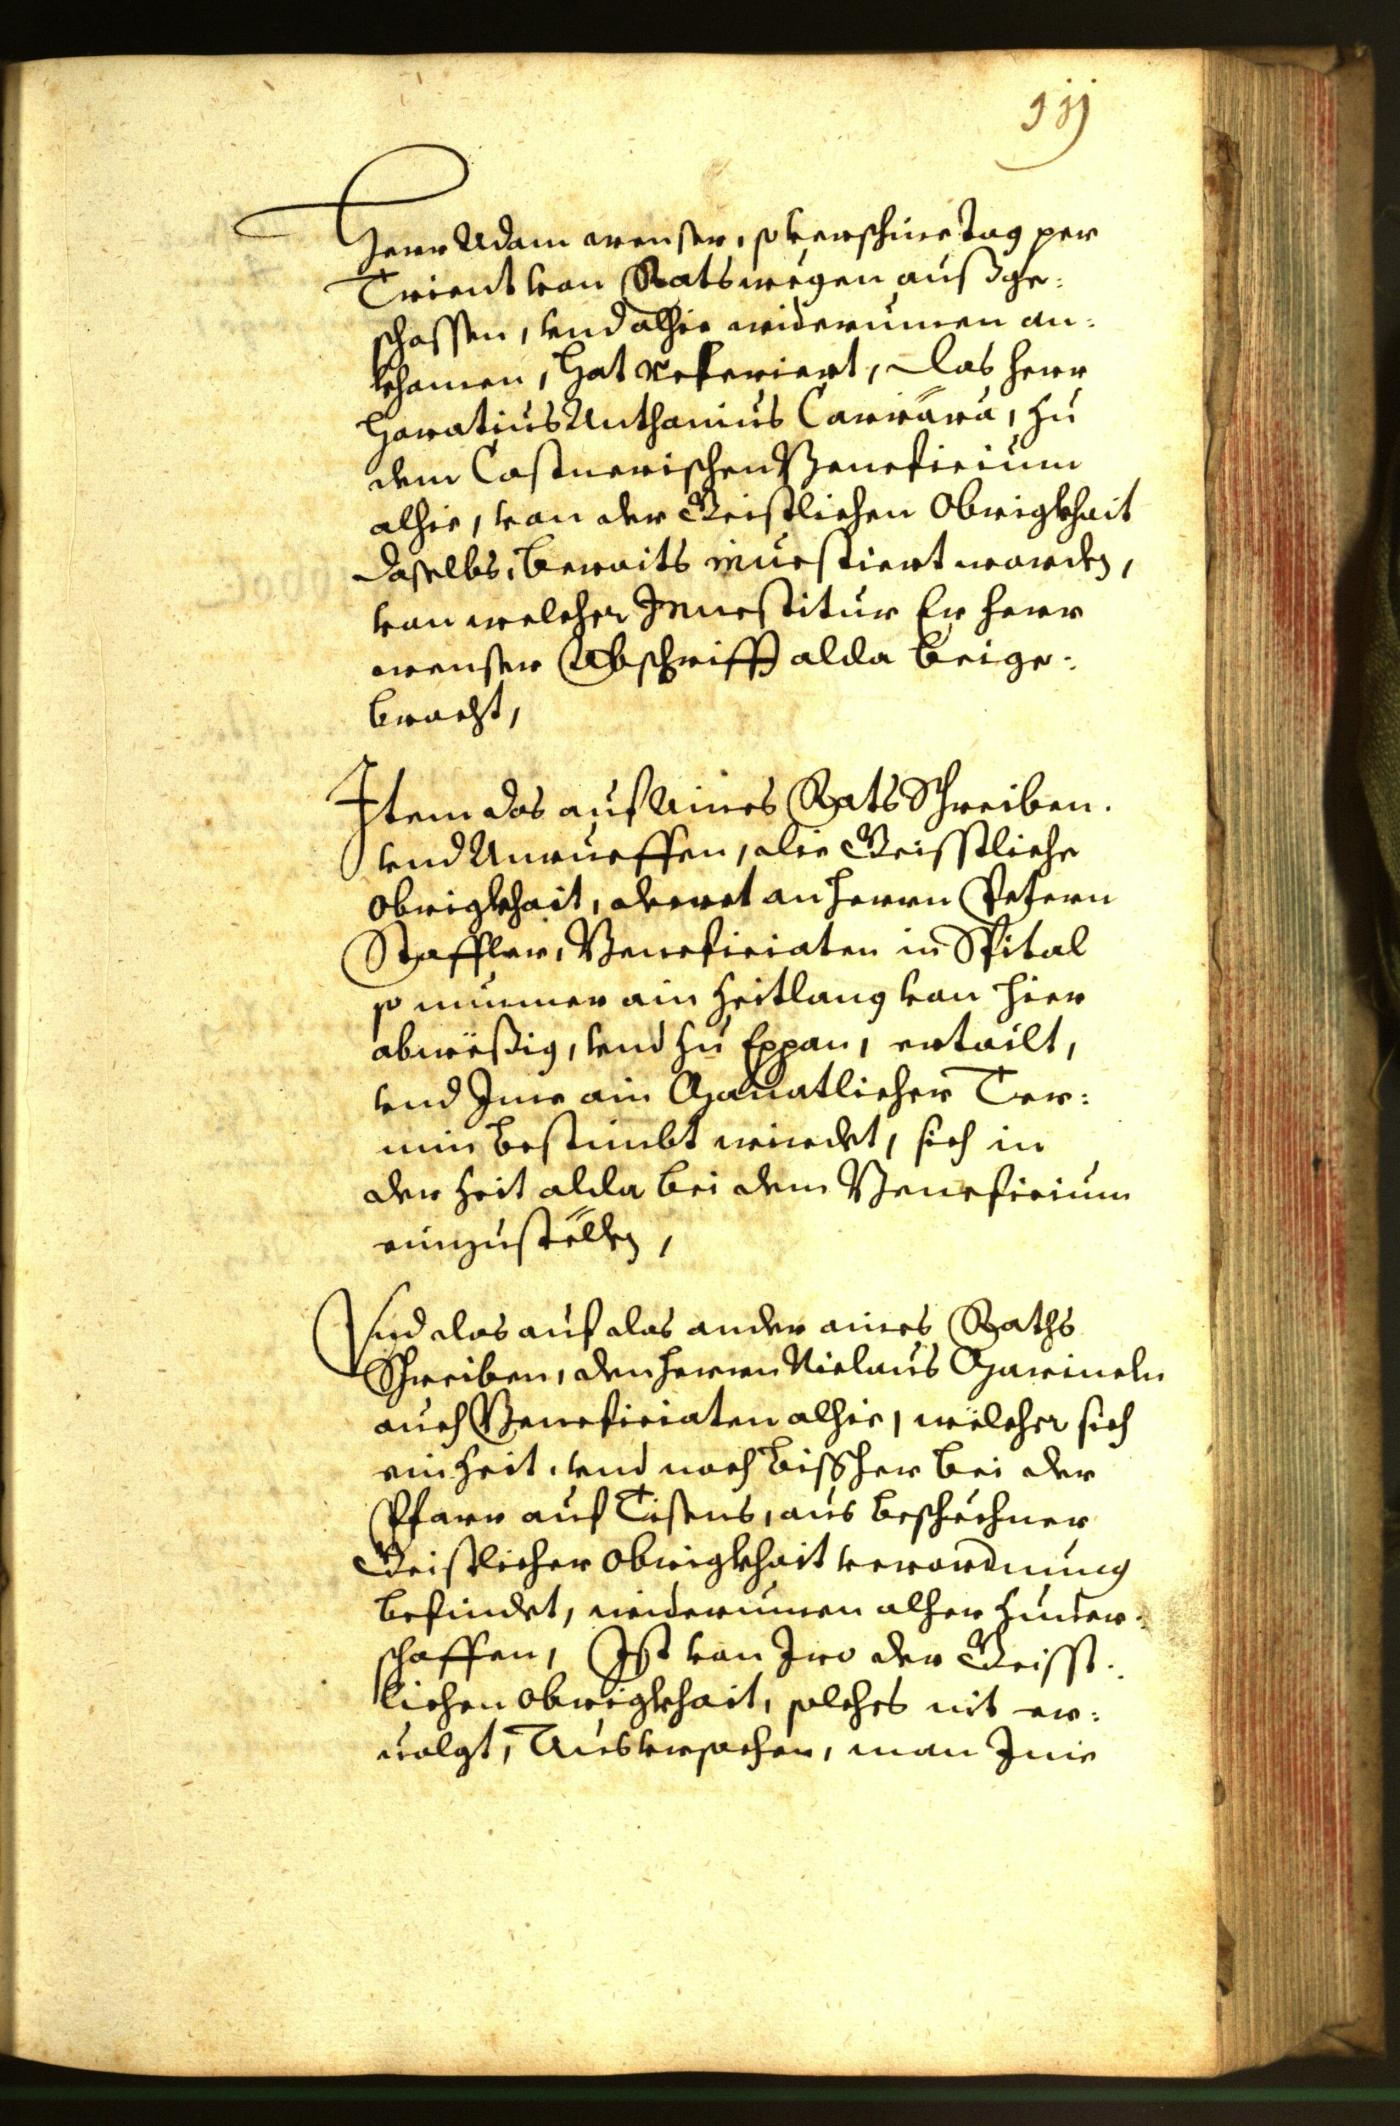 Herr Adam wenser, so verschine tag per
Trient von Ratswegen außge-
schossen, vnd alhie widerumen an-
khomen, hat referiert, das herr
Horatius Anthonius Carrara, zu
dem Costnerischen Beneficium
alhie, von der Geistlichen Obrigkhait
daselbs, beraits inuestiert worden,
von welcher Inuestitur Er herr
wenser Abschrifft alda beige-
bracht,
Item das auf Aines Rats Schreiben
vnd Anrueffen, die Geisstliche
Obrigkhait, decret an herrn Petern
Staffler, Beneficiaten in Spital
so nunmer ain Zeitlang von hier
abweßig, vnd zu Eppan, ertailt,
vnd Ime ain Monatlicher Ter-
min bestimbt wirdet, sich in
der Zeit alda bei dem Beneficium
einzustellen,
Vnd das auf das ander aines Raths
Schreiben, den herrn Niclaus Marineln
auch Beneficiaten alhie, welcher sich
ein Zeit, vnd noch bissher bei der
Pfarr auf Tisens, aus beschechner
Geistlicher Obrigkhait verordnung
befindet, widerumen alher zuuer-
schaffen, Ist von Iro der Geisst-
lichen Obrigkhait, solches nit er-
uolgt, Aus vrsachen, man Ime